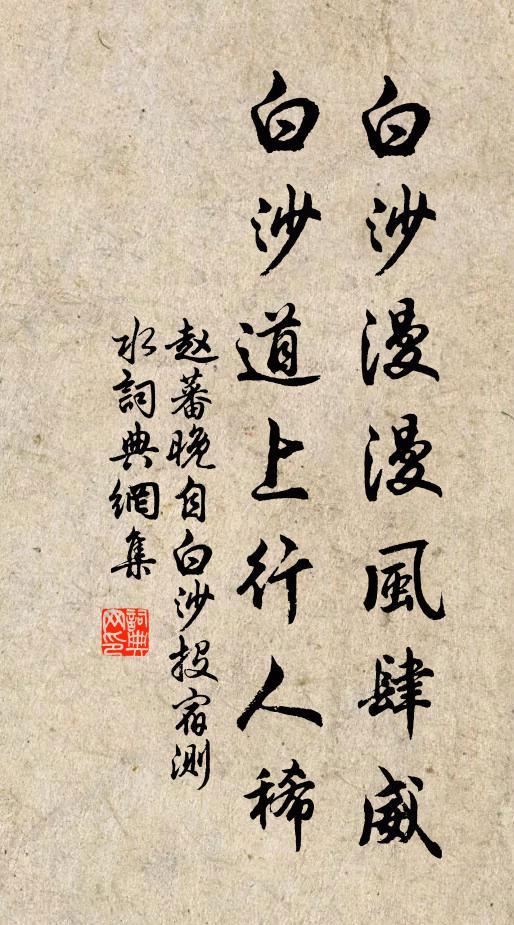 白沙漫漫風肆威
白沙道上行人稀
赵蕃晚自白沙投宿測
水詞典網集
詞典
网印